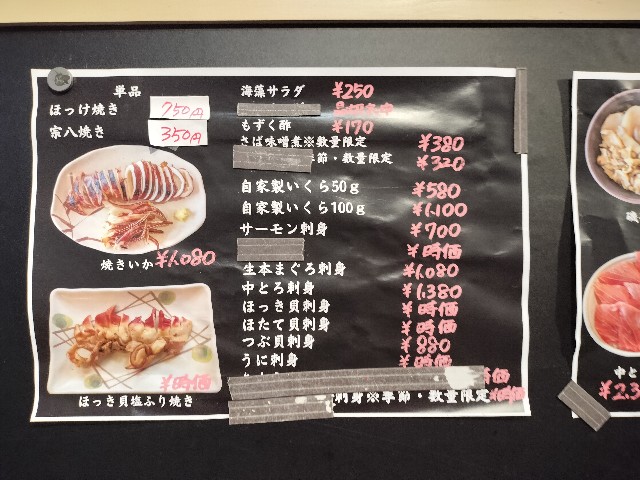 単品
ほっけ焼き 750円
宗八焼き 350円
焼きいか ¥1,080
¥時価
ほっき貝塩ふり焼き
海藻サラダ ¥250
もずく酢 ¥170
さば味噌煮※数量限定 ¥380
季節・数量限定 ¥320
自家製いくら50g ¥580
自家製いくら100g ¥1,100
サーモン刺身 ¥700
¥時価
生本まぐろ刺身 ¥1,080
中とろ刺身 ¥1,380
ほっき貝刺身 ¥時価
ほたて貝刺身 ¥時価
つぶ貝刺身 ¥880
うに刺身 ¥時価
時価
刺身※季節・数量限定 ¥時価
磯
中と
¥2,3